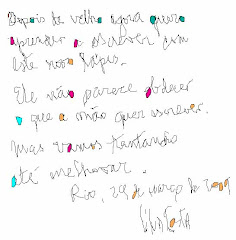 Depois de velha agora quero
aprender a escrever com
este novo lápis.
Ele não parece obedecer
o que a mão quer escrever.
Mas vamos tentando
tá melhorar.
Rio, 29 de março de 2009